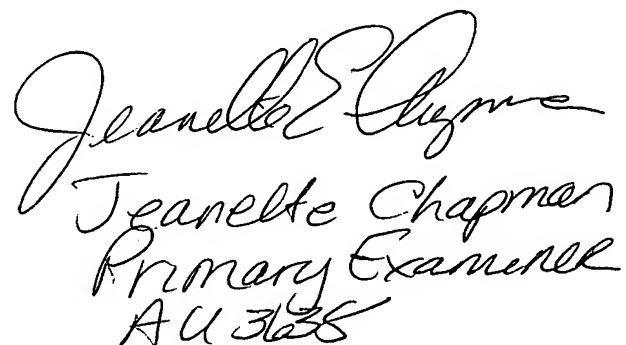 Jeanette E Chapman
Jeanette Chapman
Primary Examiner
AU 3635